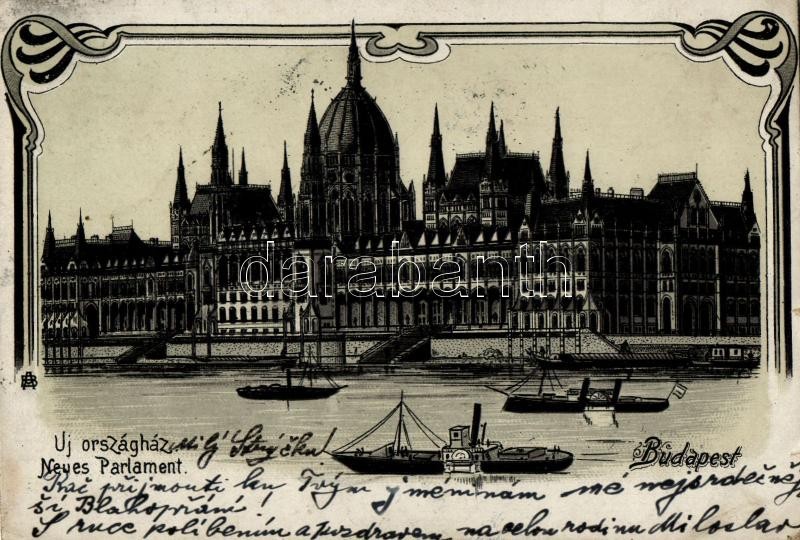 darabanth
Uj országház. Milý Strýčku!
Neues Parlament.
Budapest
Rač přijmouti ku Tvým jmeninám mé nejsrdečněj
ší Blahopřání!
S ruce políbením a pozdravem na celou rodinu Miloslav